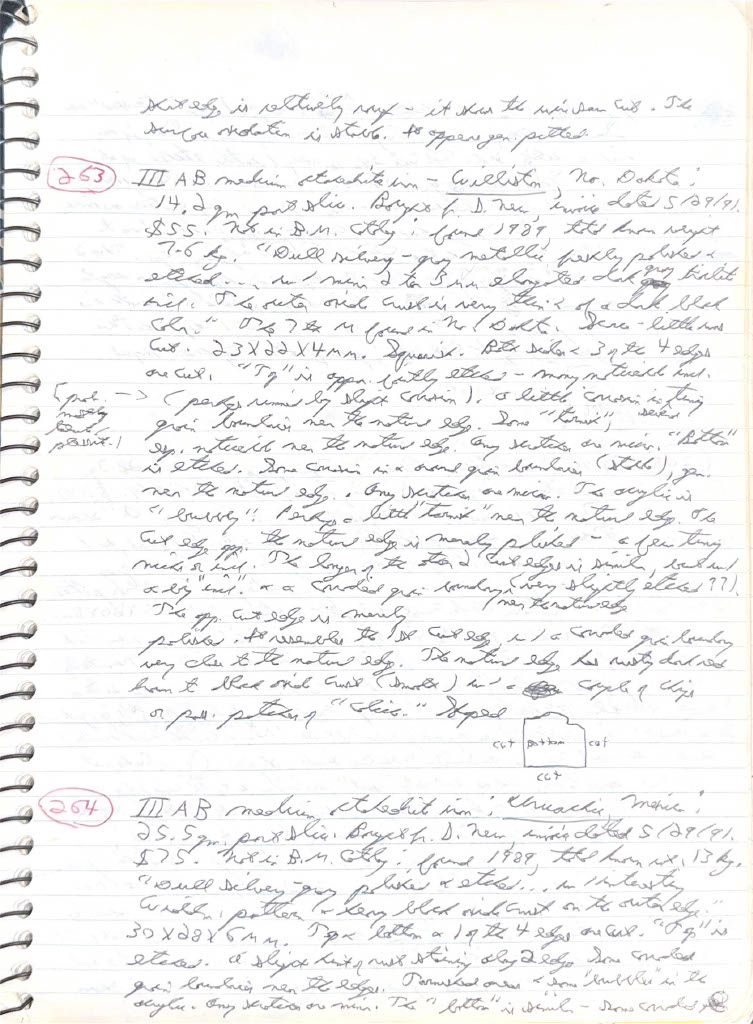 edge is relatively rough - it shows the minor cut. The
surface oxidation is stable. It appears gen. pitted.
263 III AB medium octahedrite iron - Williston, No. Dakota;
14.2 gm part slice. Bought fr. D. New, invoice dated 5/29/91.
$55. Not in B.M. Catlg; found 1989, total known weight
7.6 kg. "Dull silvery-gray metallic, freshly polished &
etched... w/ min 2 to 3 mm elongated dark gray troilite
incl. The outer oxide crust is very thin & of a dark black
color." The 7th M found in No. Dakota. Scarce - little was
cut. 23X22X4mm. Squarish. Both sides & 3 of the 4 edges
are cut. "Top" is appar. faintly etched - many noticeable incl.
[prob. mostly -->
(perhaps ruined by slight corrosion). A little corrosion is along
grain boundaries near the natural edge. Some "tarnish",
esp. noticeable near the natural edge. Any scratches are minor. "Bottom"
is etched. Some corrosion in & around grain boundaries (stable), gen.
near the natural edge. Any scratches are minor. The acrylic is
"bubbly". Perhaps a little "tarnish" near the natural edge. The
cut edge opp. the natural edge is merely polished - a few tiny
nicks or incl. The longer of the other 2 cut edges is similar, but w/
a big "incl." & a corroded grain boundary (very slightly etched??).
near the natural edge
The opp. cut edge is merely
polished. It resembles the 1st cut edge, w/ a corroded grain boundary
very close to the natural edge. The natural edge has mostly dark red
brown to black oxide crust (smooth) w/ a couple of chips
or poss. patches of "caliche." Shaped
cut bottom cut
cut
264 III AB medium octahedrite iron; Uruachic, Mexico;
25.5 gm. part slice. Bought fr. D. New, invoice dated 5/29/91.
$75. Not in B.M. Catlg; found 1989, total known wt. 13 kg.
"Dull silvery-gray polished & etched... w/ interesting
Widdm. pattern & heavy black oxide crust on the outer edge."
30X28X6mm. Top & bottom & 1 of the 4 edges are cut. "Top" is
etched. A slight hint of rust staining along 2 edges. Some corroded
grain boundaries near the edges. Tarnished areas & some "bubbles" in the
acrylic. Any scratches are min. The "bottom" is similar - some corroded